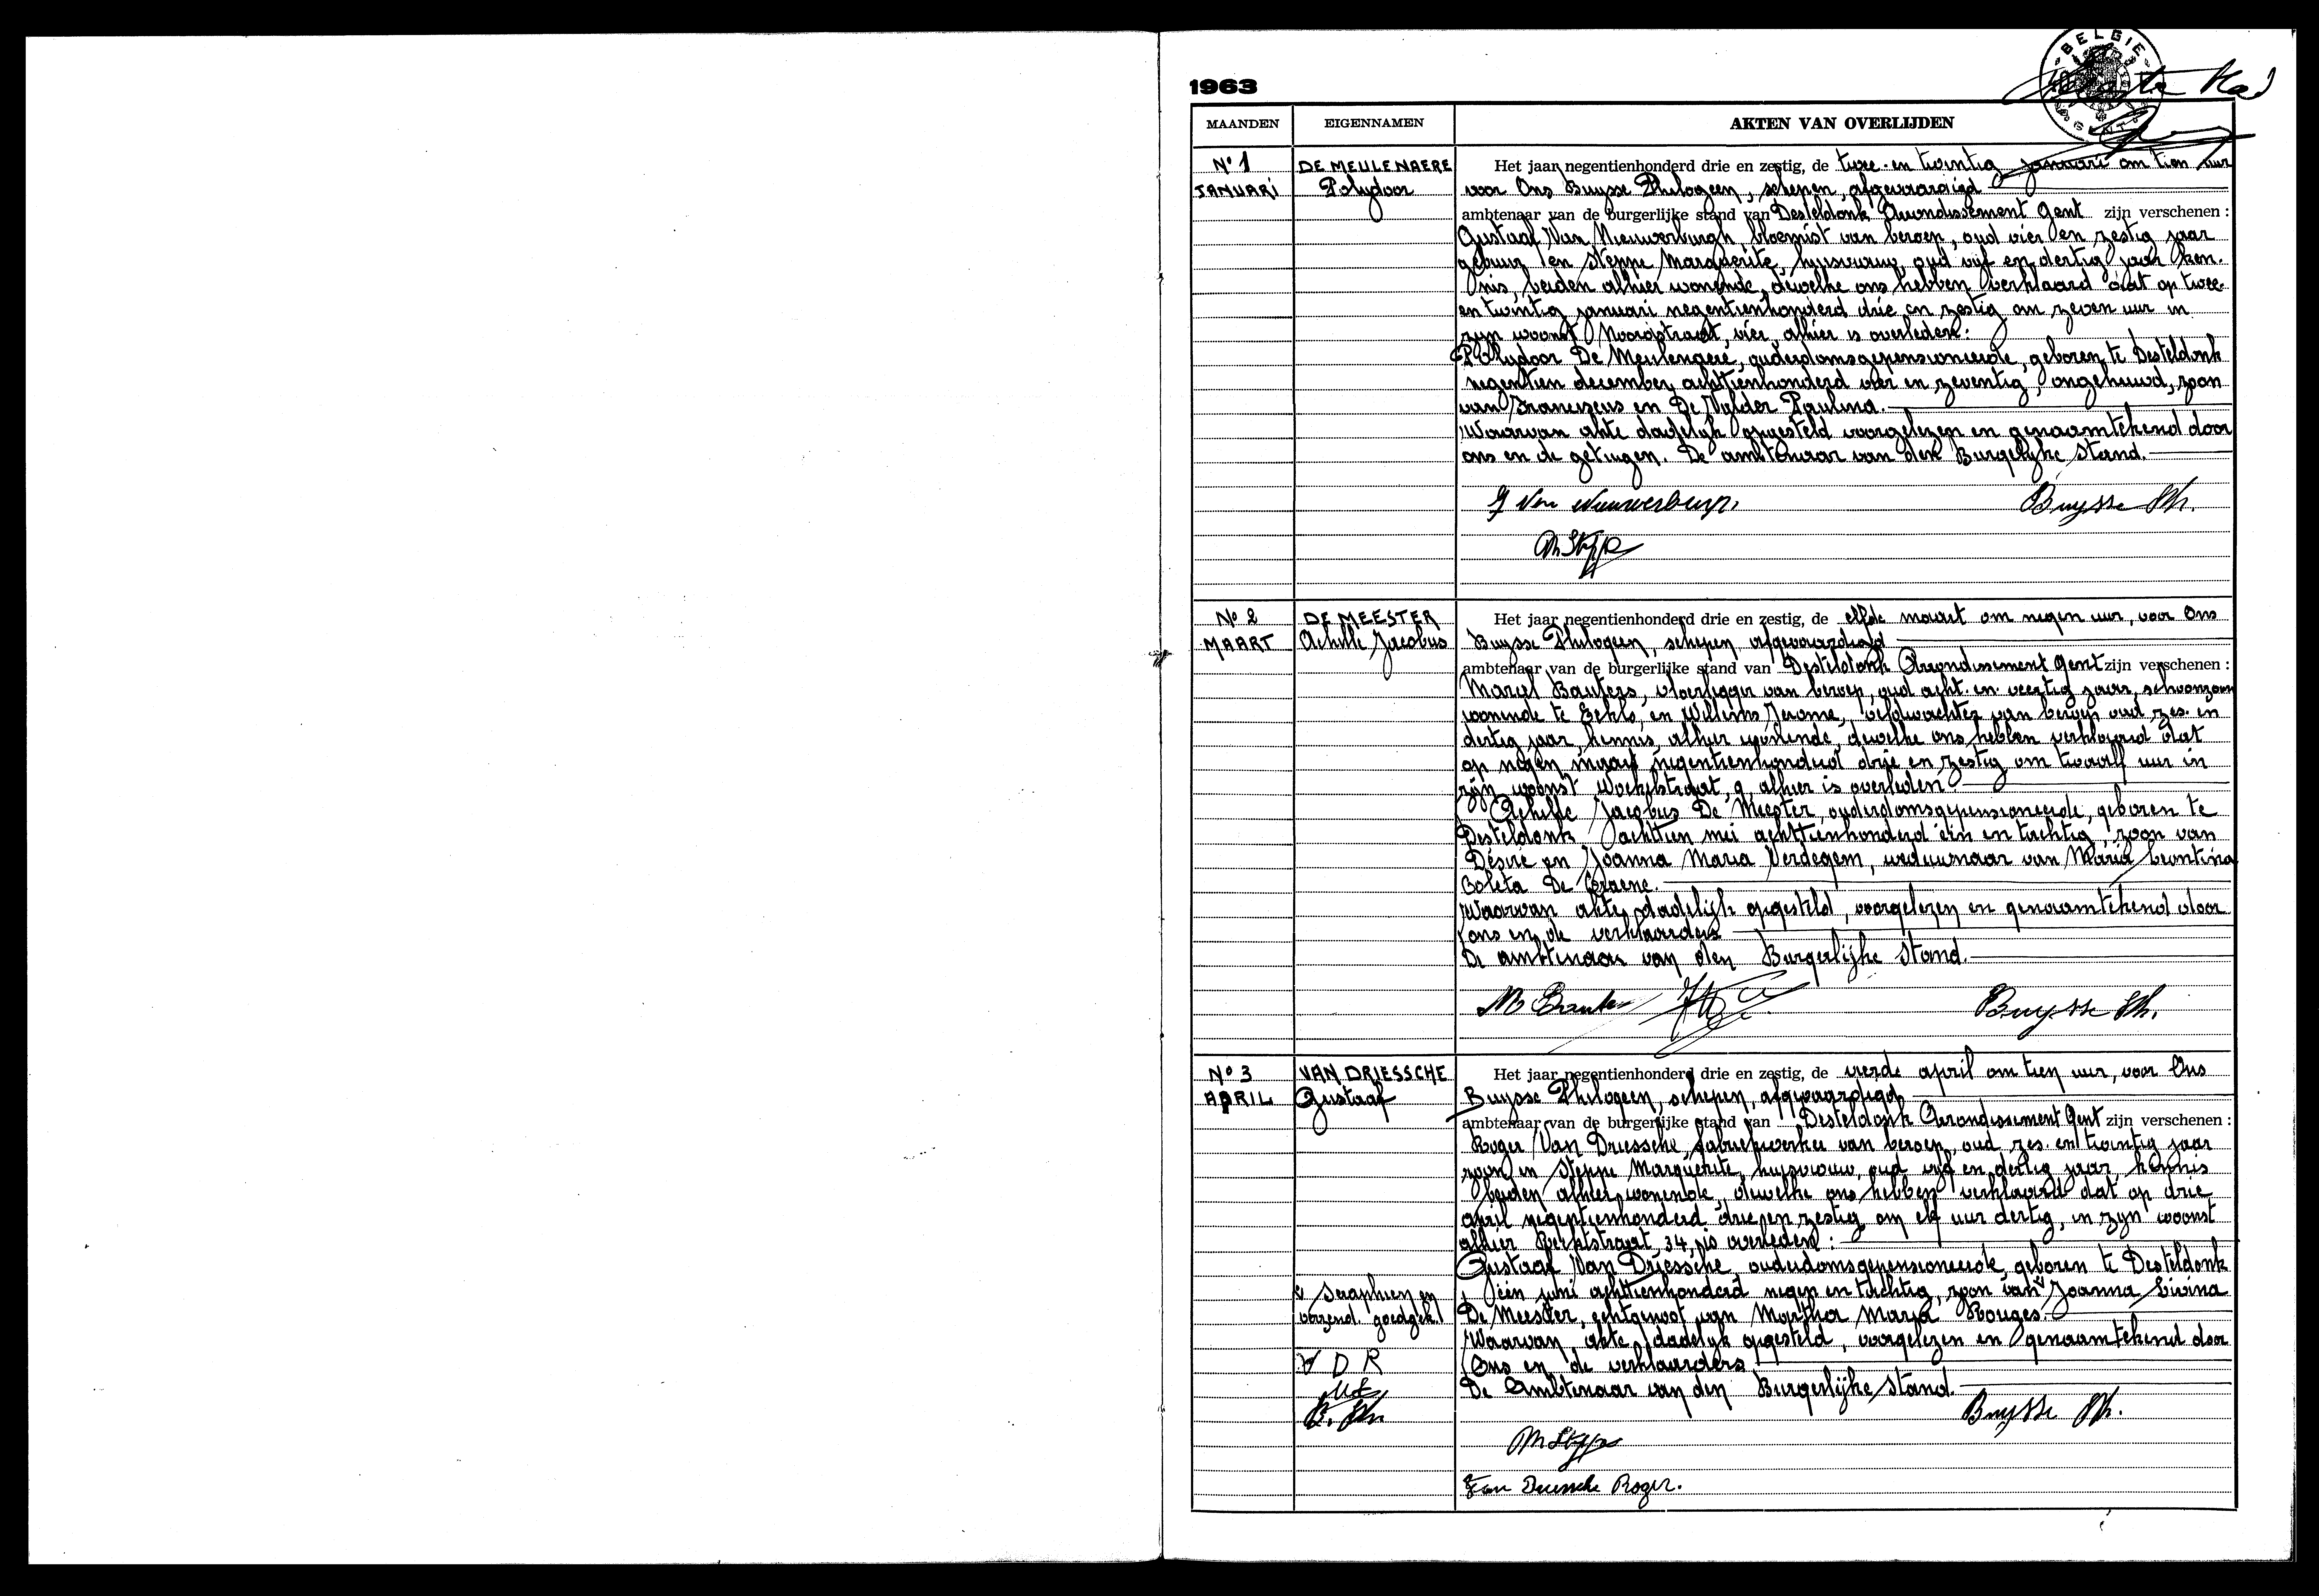 BELGIE
GENT
1963
MAANDEN EIGENNAMEN AKTEN VAN OVERLIJDEN
N° 1
JANUARI
DE MEULENAERE
Polydoor
Het jaar negentienhonderd drie en zestig, de twee en twintig januari om tien uur
voor Ons Buysse Philogeen, schepen, afgevaardigd
ambtenaar van de burgerlijke stand van Desteldonk Arrondissement Gent zijn verschenen :
Gustaaf Van Nieuwerburgh, bloemist van beroep, oud vier en zestig jaar
gebuur en Steppe Marguerite, huisvrouw, oud vijf en dertig jaar ken-
nis, beiden alhier wonende, dewelke ons hebben verklaard dat op twee-
en twintig januari negentienhonderd drie en zestig om zeven uur in
zijn woonst Noordstraat, vier, alhier is overleden:
Polydoor De Meulenaere, ouderdomsgepensioneerde, geboren te Desteldonk
negentien december achttienhonderd vier en zeventig, ongehuwd, zoon
van Franciscus en De Wylder Paulina.
Waarvan akte dadelijk opgesteld voorgelezen en genaamtekend door
ons en de getuigen. De ambtenaar van den Burgelijke Stand.
G Van Nieuwerburgh
Buysse Ph.
M Steppe
N° 2
MAART
DE MEESTER
Achille Jacobus
Het jaar negentienhonderd drie en zestig, de elfde maart om negen uur, voor Ons
Buysse Philogeen, schepen, afgevaardigd
ambtenaar van de burgerlijke stand van Desteldonk Arrondissement Gent zijn verschenen :
Marcel Bauters, vloerlegger van beroep, oud acht en veertig jaar, schoonzoon
wonende te Eeklo, en Willems Jerome, veldwachter van beroep oud zes en
dertig jaar, kennis, alhier wonende, dewelke ons hebben verklaard dat
op negen maart negentienhonderd drie en zestig om twaalf uur in
zijn woonst 9, alhier is overleden:
Achille Jacobus De Meester, ouderdomsgepensioneerde, geboren te
Desteldonk achttien mei achttienhonderd één en tachtig, zoon van
Désiré en Joanna Maria Verdegem, weduwnaar van Maria Leontina
Coleta De Graene.
Waarvan akte dadelijk opgesteld, voorgelezen en genaamtekend door
ons en de verklaarders
De ambtenaar van den Burgerlijke Stand.
M Bauters
Buysse Ph.
N° 3
APRIL
VAN DRIESSCHE
Gustaaf
Het jaar negentienhonderd drie en zestig, de vierde april om tien uur, voor Ons
Buysse Philogeen, schepen, afgevaardigd
ambtenaar van de burgerlijke stand van Desteldonk Arrondissement Gent zijn verschenen :
Roger Van Driessche, fabriekwerker van beroep, oud zes en twintig jaar
zoon en Steppe Marguerite, huisvrouw, oud vijf en dertig jaar, kennis
beiden alhier wonende, dewelke ons hebben verklaard dat op drie
april negentienhonderd drie en zestig om elf uur dertig, in zijn woonst
alhier 34, is overleden:
Gustaaf Van Driessche ouderdomsgepensioneerde, geboren te Desteldonk
één juni achttienhonderd negen en tachtig, zoon van Joanna Livina
De Meester, echtgenoot van Martha Maria Rouges.
Waarvan akte dadelijk opgesteld, voorgelezen en genaamtekend door
Ons en de verklaarders
De Ambtenaar van den Burgerlijke Stand.
Seraphien en
verzend. goedgek.
V D R
M S
B. Ph.
Buysse Ph.
M Steppe
Van Driessche Roger.